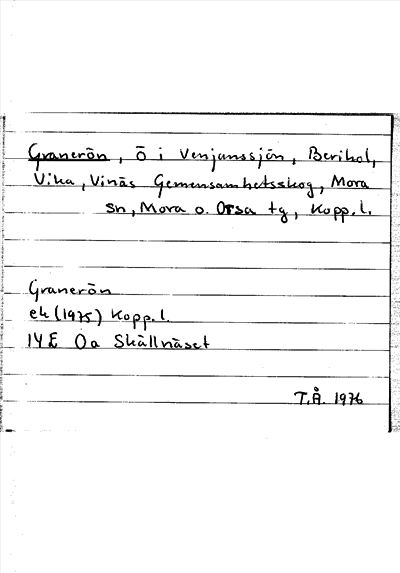 Granerön, ö i Venjanssjön, Berikol,
Vika, Vinäs Gemensamhetsskog, Mora
sn, Mora o. Orsa tg, Kopp. l.
Granerön
ek (1975) Kopp. l.
14E 0a Skällnäset
T.Å. 1976